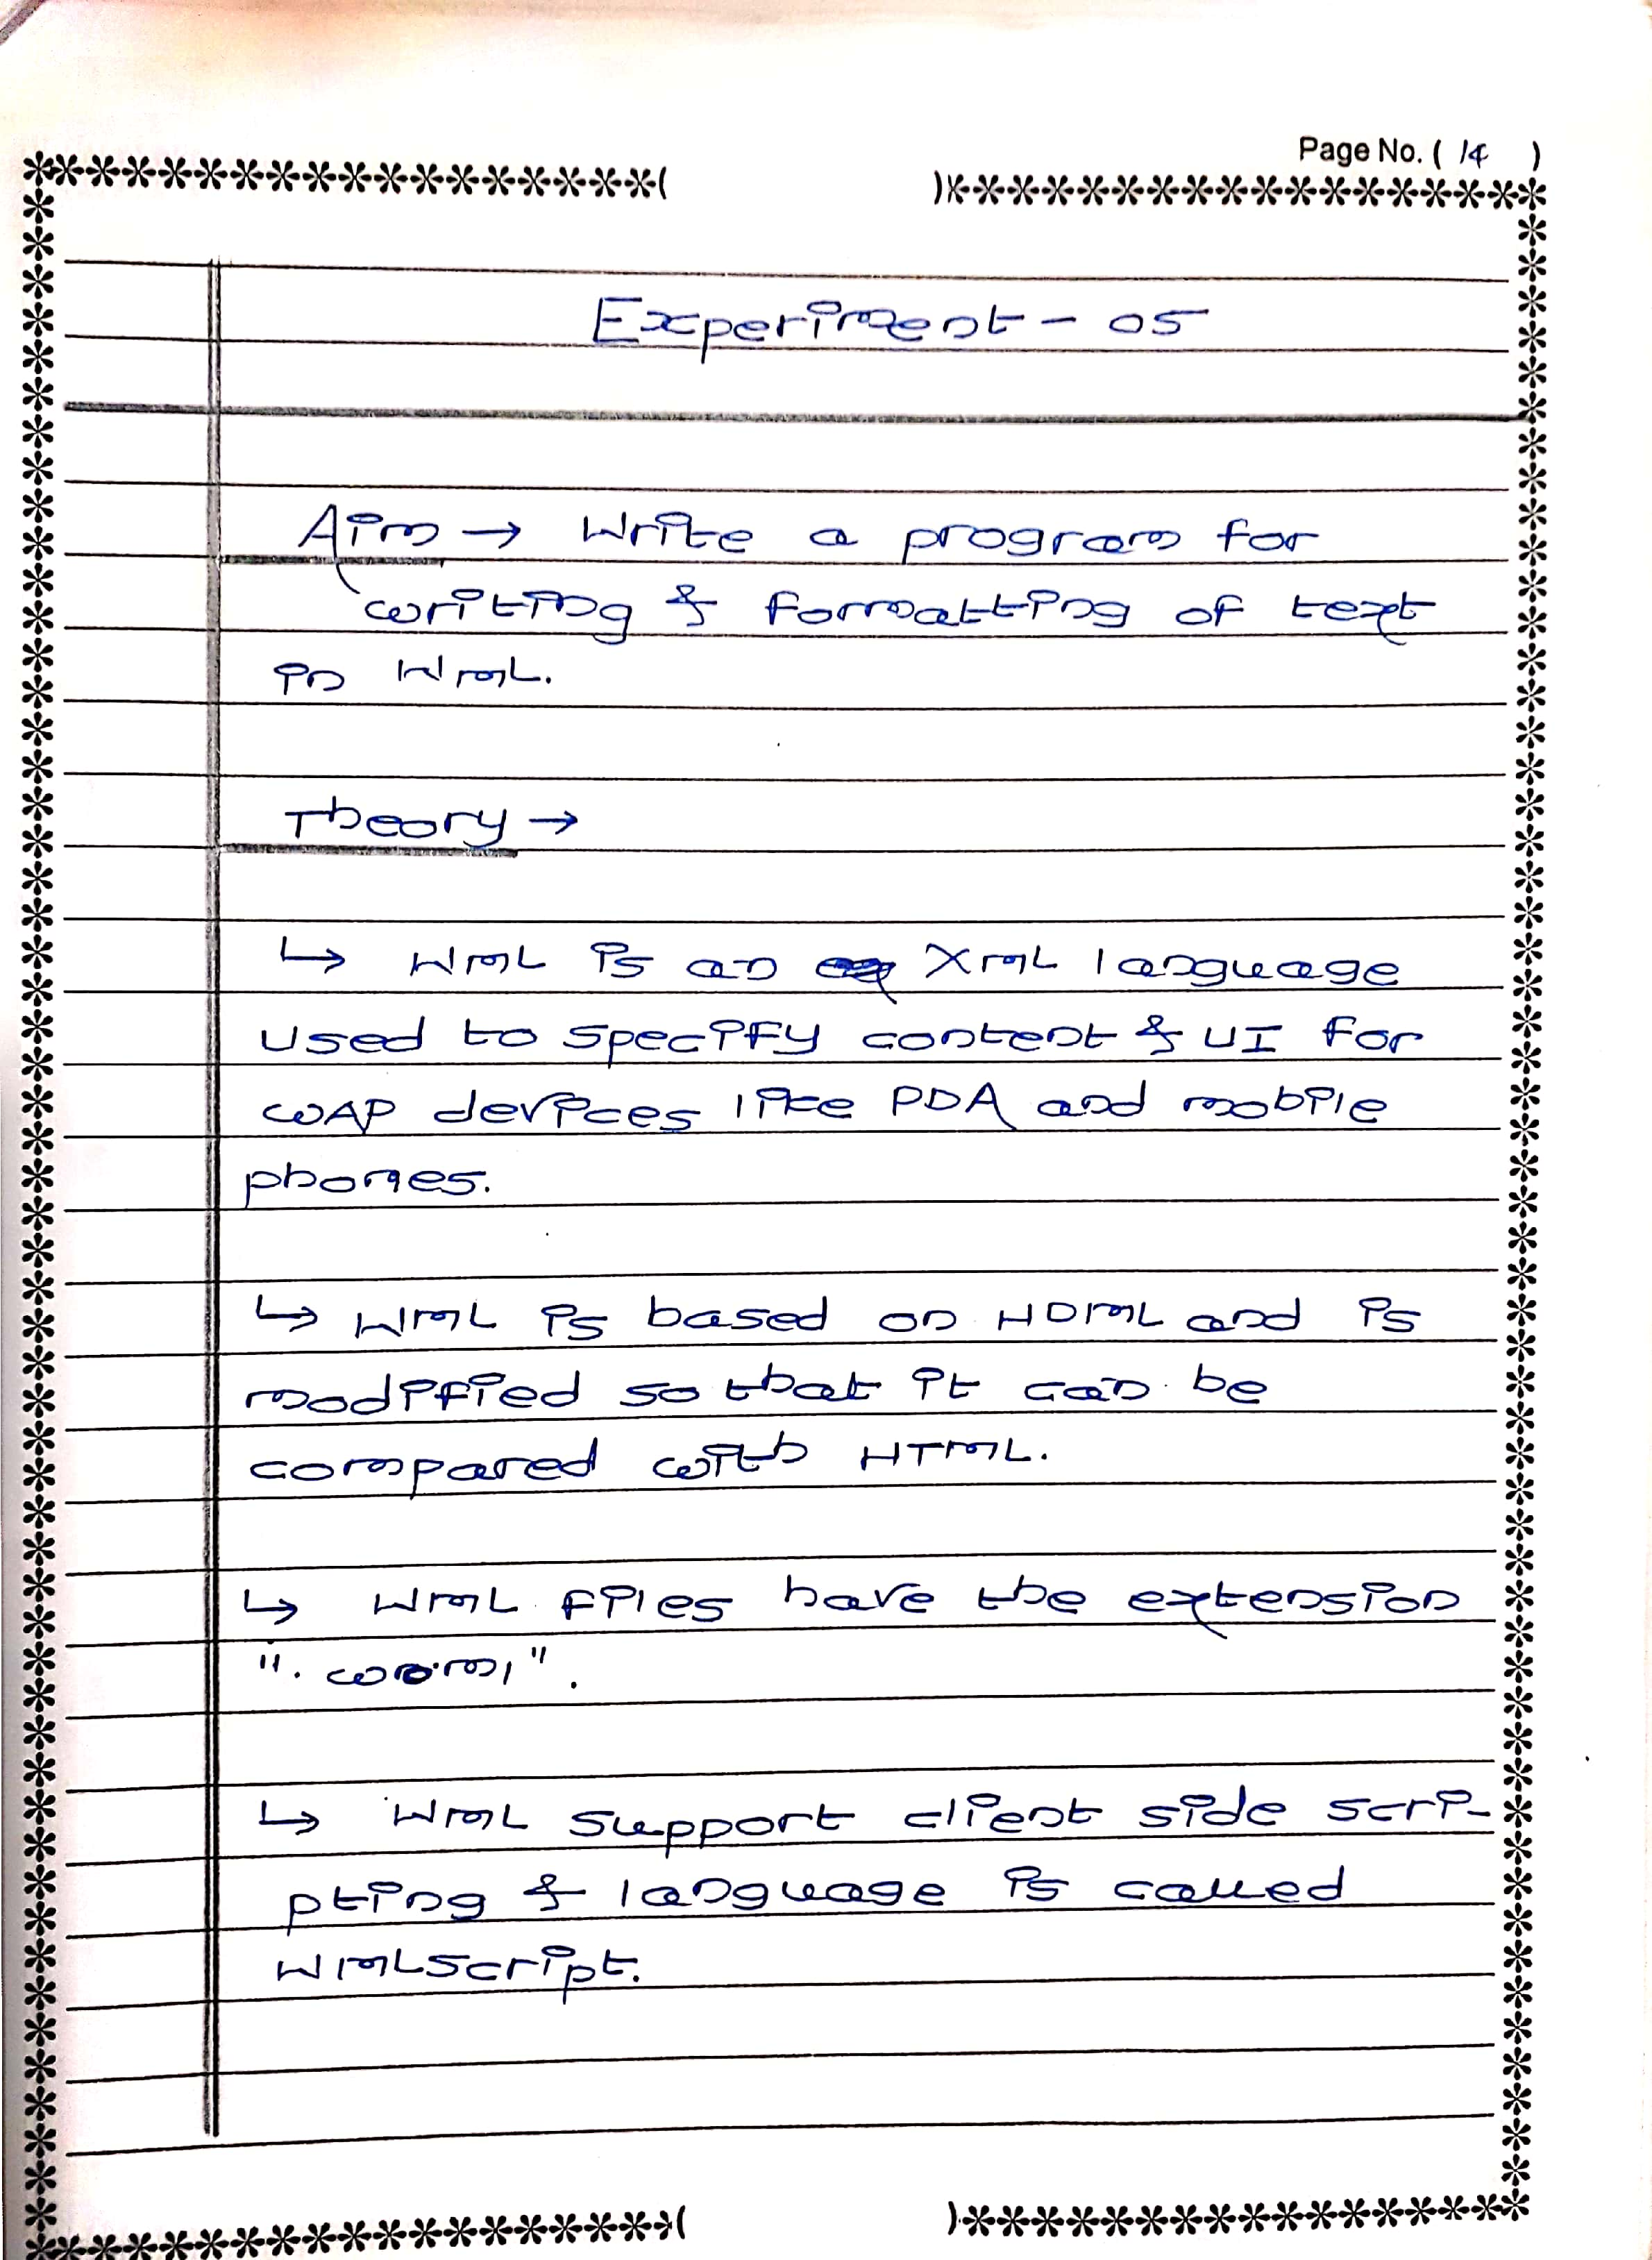 Page No. ( 14 )
Experiment - 05
Aim → Write a program for
writing & formatting of text
in WML.
Theory →
↳ WML is an XML language
used to specify content & UI for
WAP devices like PDA and mobile
phones.
↳ WML is based on HDML and is
modified so that it can be
compared with HTML.
↳ WML files have the extension
".
↳ WML support client side scri-
pting & language is called
WMLScript.